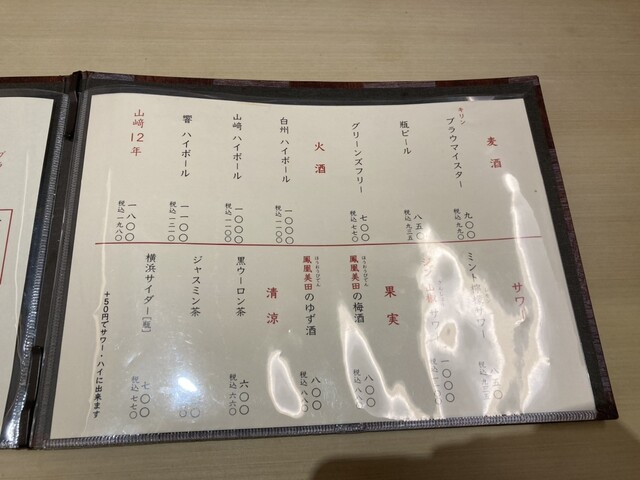 麦酒
キリン
ブラウマイスター
九〇〇
税込九九〇
瓶ビール
八五〇
税込九三五
グリーンズフリー
七〇〇
税込七七〇
火酒
白州 ハイボール
一〇〇〇
税込一一〇〇
山﨑 ハイボール
一〇〇〇
税込一一〇〇
響 ハイボール
一一〇〇
税込一二一〇
山﨑12年
一八〇〇
税込一九八〇
サワー
ミント
サワー
八五〇
税込九三五
サワー
一〇〇〇
税込
果実
ほうおうびでん
鳳凰美田の梅酒
八〇〇
税込八八〇
ほうおうびでん
鳳凰美田のゆず酒
八〇〇
税込八八〇
清涼
黒ウーロン茶
六〇〇
税込六六〇
ジャスミン茶
横浜サイダー[瓶]
七〇〇
税込七七〇
+50円でサワー・ハイに出来ます